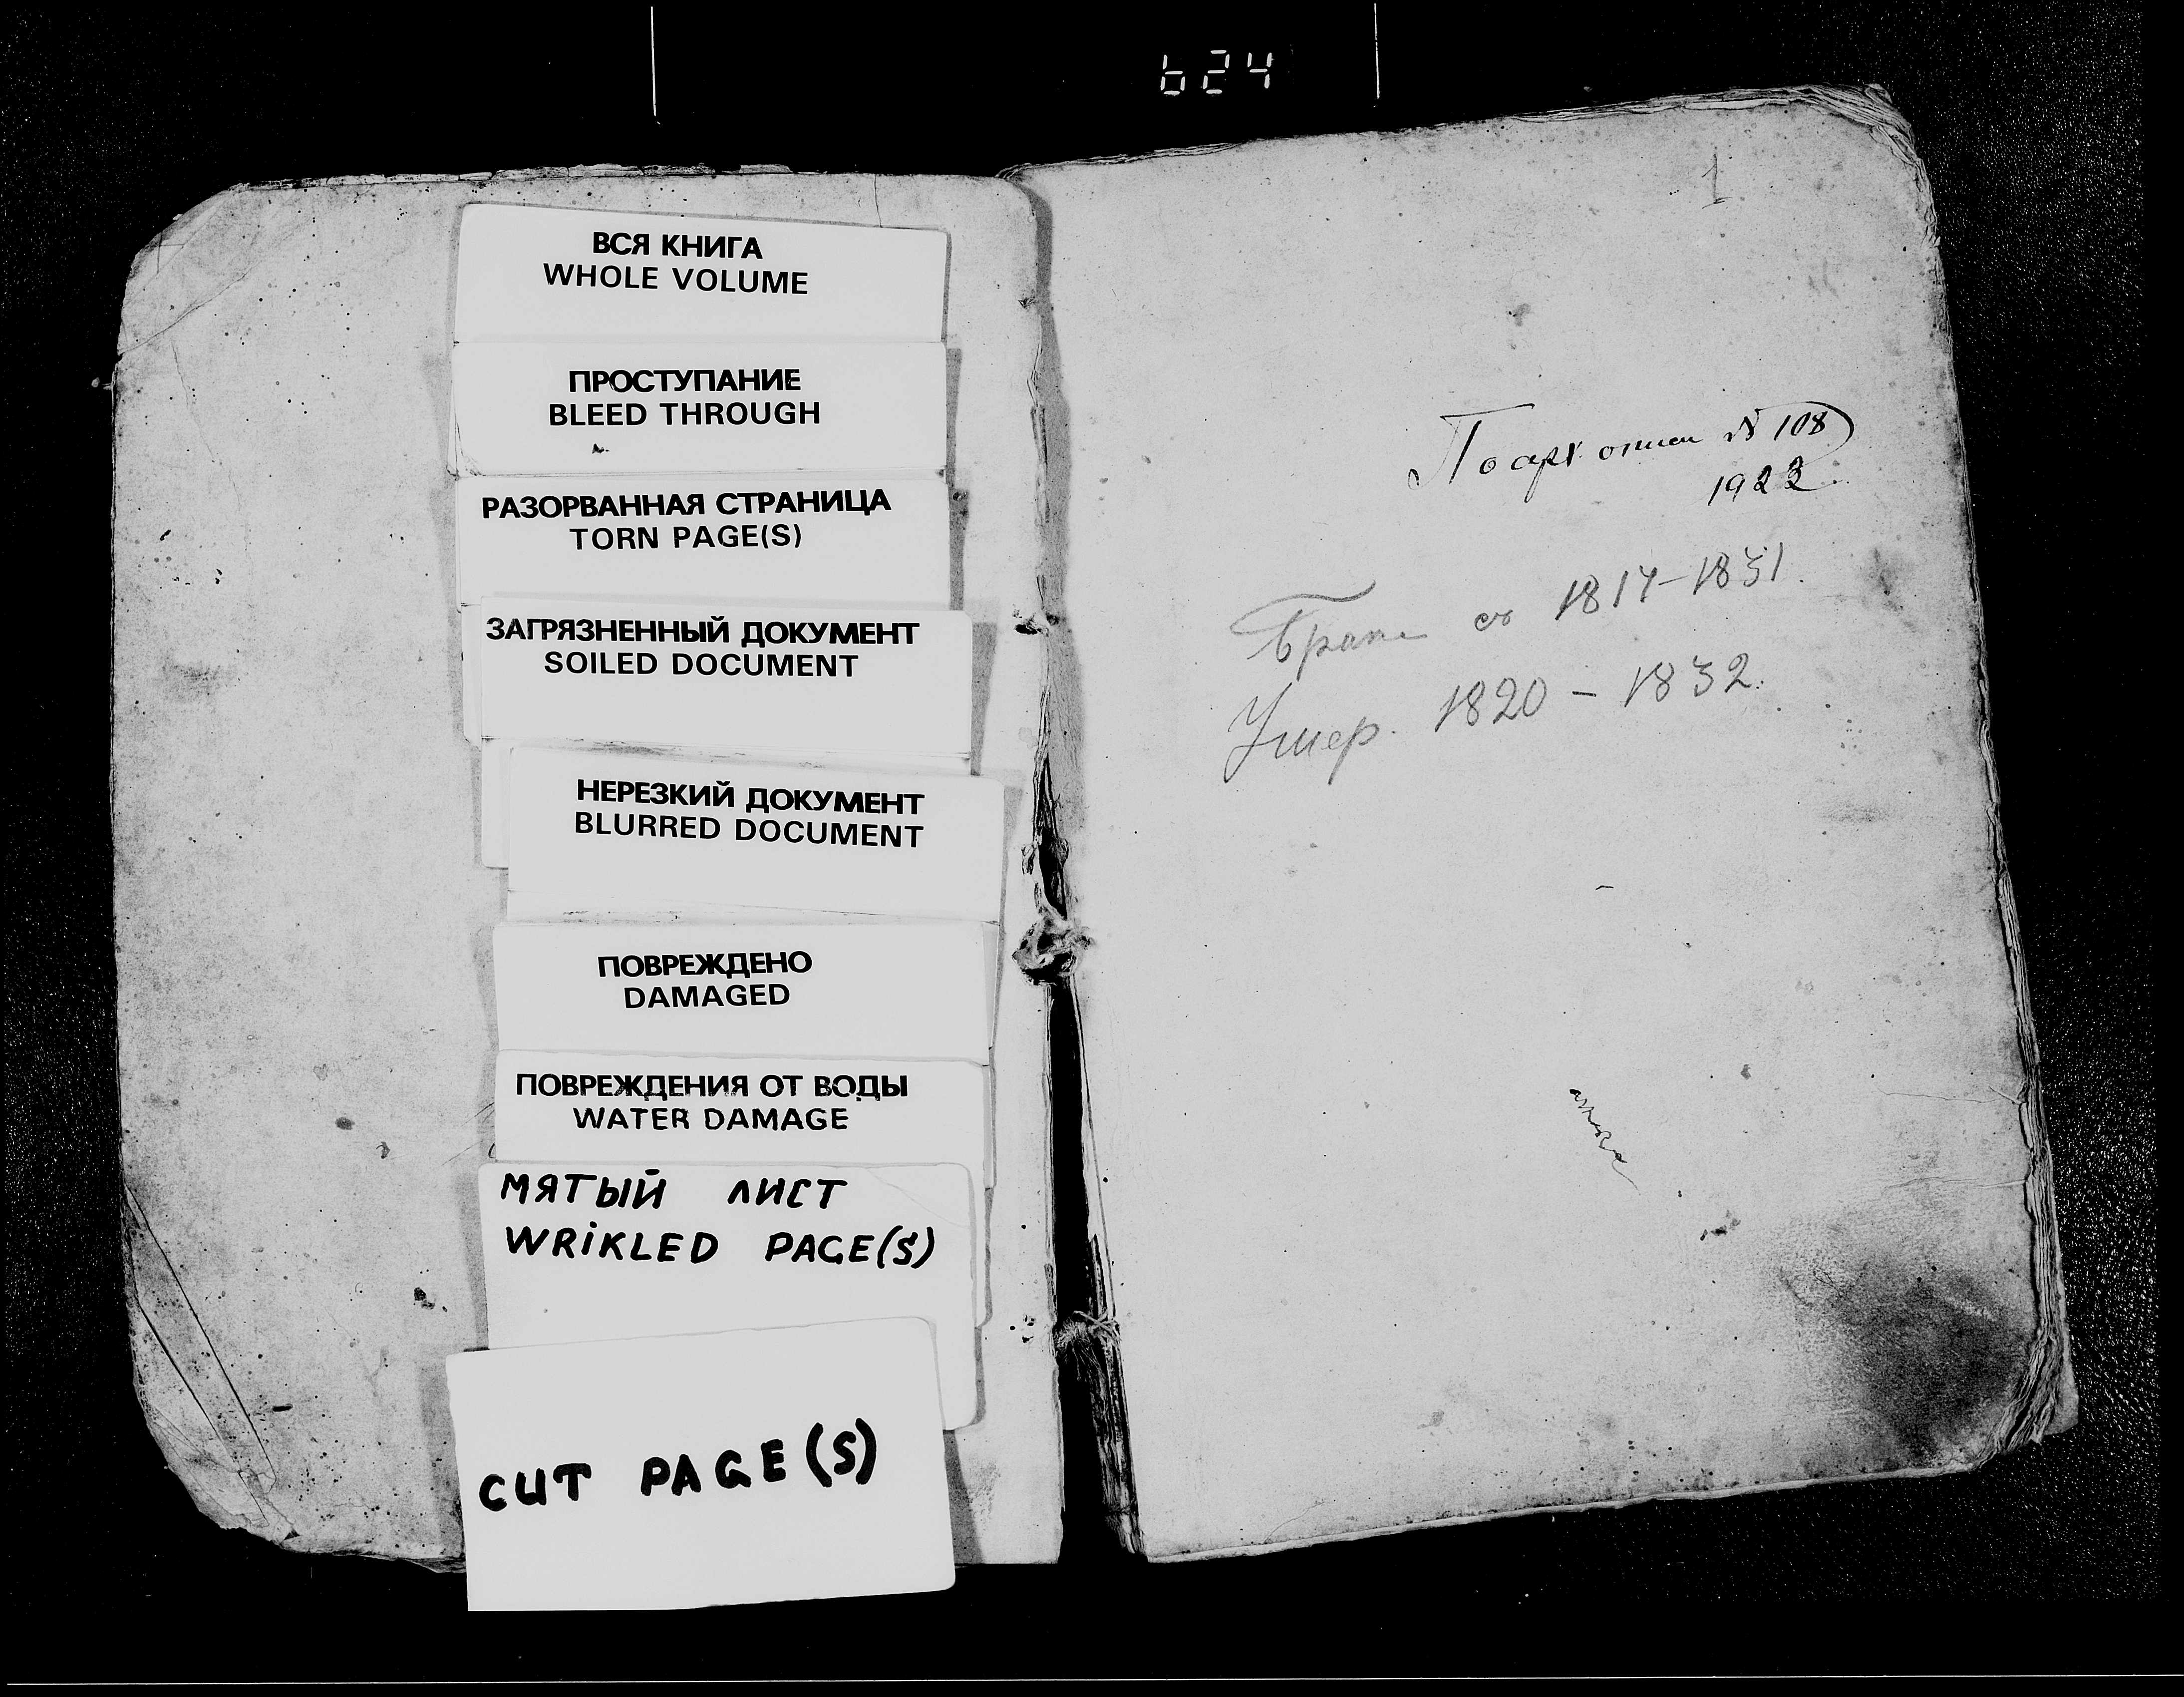 624
ВСЯ КНИГА
WHOLE VOLUME
ПРОСТУПАНИЕ
BLEED THROUGH
РАЗОРВАННАЯ СТРАНИЦА
TORN PAGE(S)
ЗАГРЯЗНЕННЫЙ ДОКУМЕНТ
SOILED DOCUMENT
НЕРЕЗКИЙ ДОКУМЕНТ
BLURRED DOCUMENT
ПОВРЕЖДЕНО
DAMAGED
ПОВРЕЖДЕНИЯ ОТ ВОДЫ
WATER DAMAGE
МЯТЫЙ ЛИСТ
WRIKLED PAGE(S)
CUT PAGE(S)
1
По арх описи № 108
1923
1817-1831.
Умер. 1820 - 1832.